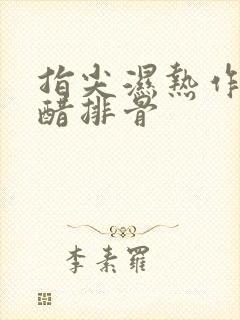 指尖濕熱作
醋排骨
李素羅